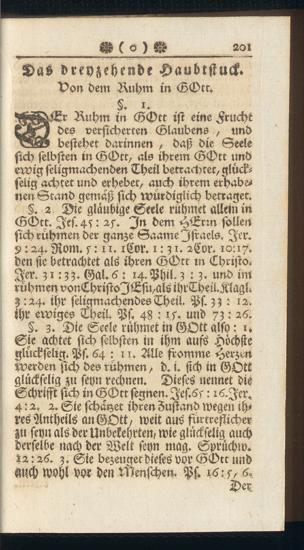 ( o ) 201
Das dreyzehende Haubtstuck.
Von dem Ruhm in GOtt.
§. 1.
DEr Ruhm in GOtt ist eine Frucht
des versicherten Glaubens, und
bestehet darinnen, daß die Seele
sich selbsten in GOtt, als ihrem GOtt und
ewig seligmachenden Theil betrachtet, glück-
selig achtet und erhebet, auch ihrem erhabe-
nen Stand gemäß sich würdiglich betraget.
§. 2. Die gläubige Seele rühmet allein in
GOtt. Jes. 45: 25. In dem HErrn sollen
sich rühmen der ganze Saame Jsraels. Jer.
9: 24. Rom. 5: 11. 1Cor. 1: 31. 2Cor. 10: 17.
den sie betrachtet als ihren GOtt in Christo.
Jer. 31: 33. Gal. 6: 14. Phil. 3: 3. und im
rühmen von Christo JEsu, als ihr Theil. Klagl.
3: 24. ihr seligmachendes Theil. Ps. 33: 12.
ihr ewiges Theil. Ps. 48: 15. und 73: 26.
§. 3. Die Seele rühmet in GOtt also: 1.
Sie achtet sich selbsten in ihm aufs Höchste
glückselig. Ps. 64: 11. Alle fromme Herzen
werden sich des rühmen, d. i. sich in GOtt
glückselig zu seyn rechnen. Dieses nennet die
Schrifft sich in GOtt segnen. Jes. 65: 16. Jer.
4: 2. 2. Sie schätzet ihren Zustand wegen ih-
res Antheils an GOtt, weit aus fürtreflicher
zu seyn als der Unbekehrten, wie glückselig auch
derselbe nach der Welt seyn mag. Sprüchw.
12: 26. 3. Sie bezeuget dieses vor GOtt und
auch wohl vor den Menschen. Ps. 16: 5, 6.
Der